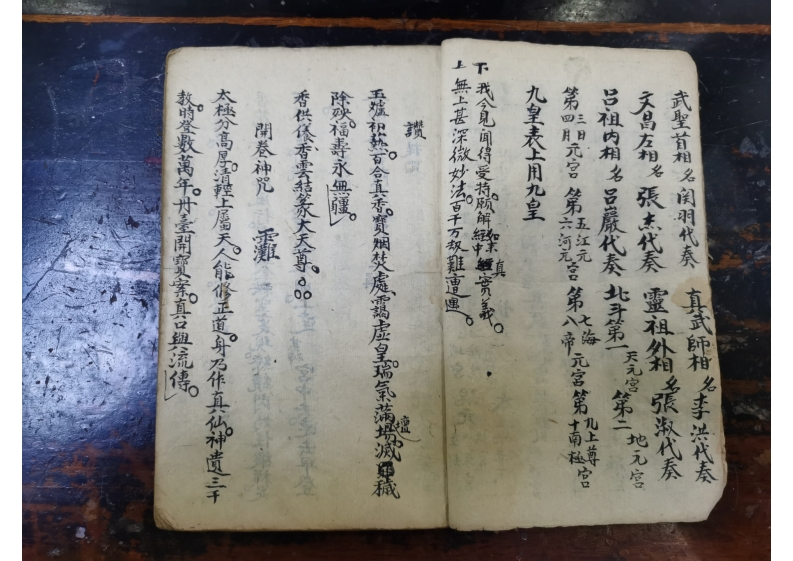 武聖首相名関羽代奏　真武師相名李洪代奏
文昌左相名張杰代奏　靈祖外相名張淑代奏
呂祖内相名呂巖代奏　北斗第一天元宮　第二地元宮
第三日第四月元宮　第五江元第六河元宮　第七海第八帝元宮　第九上尊十南極宮
九皇表上用九皇
下　我今見聞得受持。願解如來經中真實義。
上　無上甚深微妙法。百千万劫難遭遇。
讃
玉爐初熱。百合真香。寶烟焚處。靄虛皇。瑞氣滿壇場。滅穢
除殃。福壽永無疆。
香供養香雲結篆大天尊。
開卷神咒　靈灘
太極分高厚。清輕上屬天。人能修正道。身乃作真仙。神遺三千
教。時登數萬年。丹臺開寶案。真口與流傳。